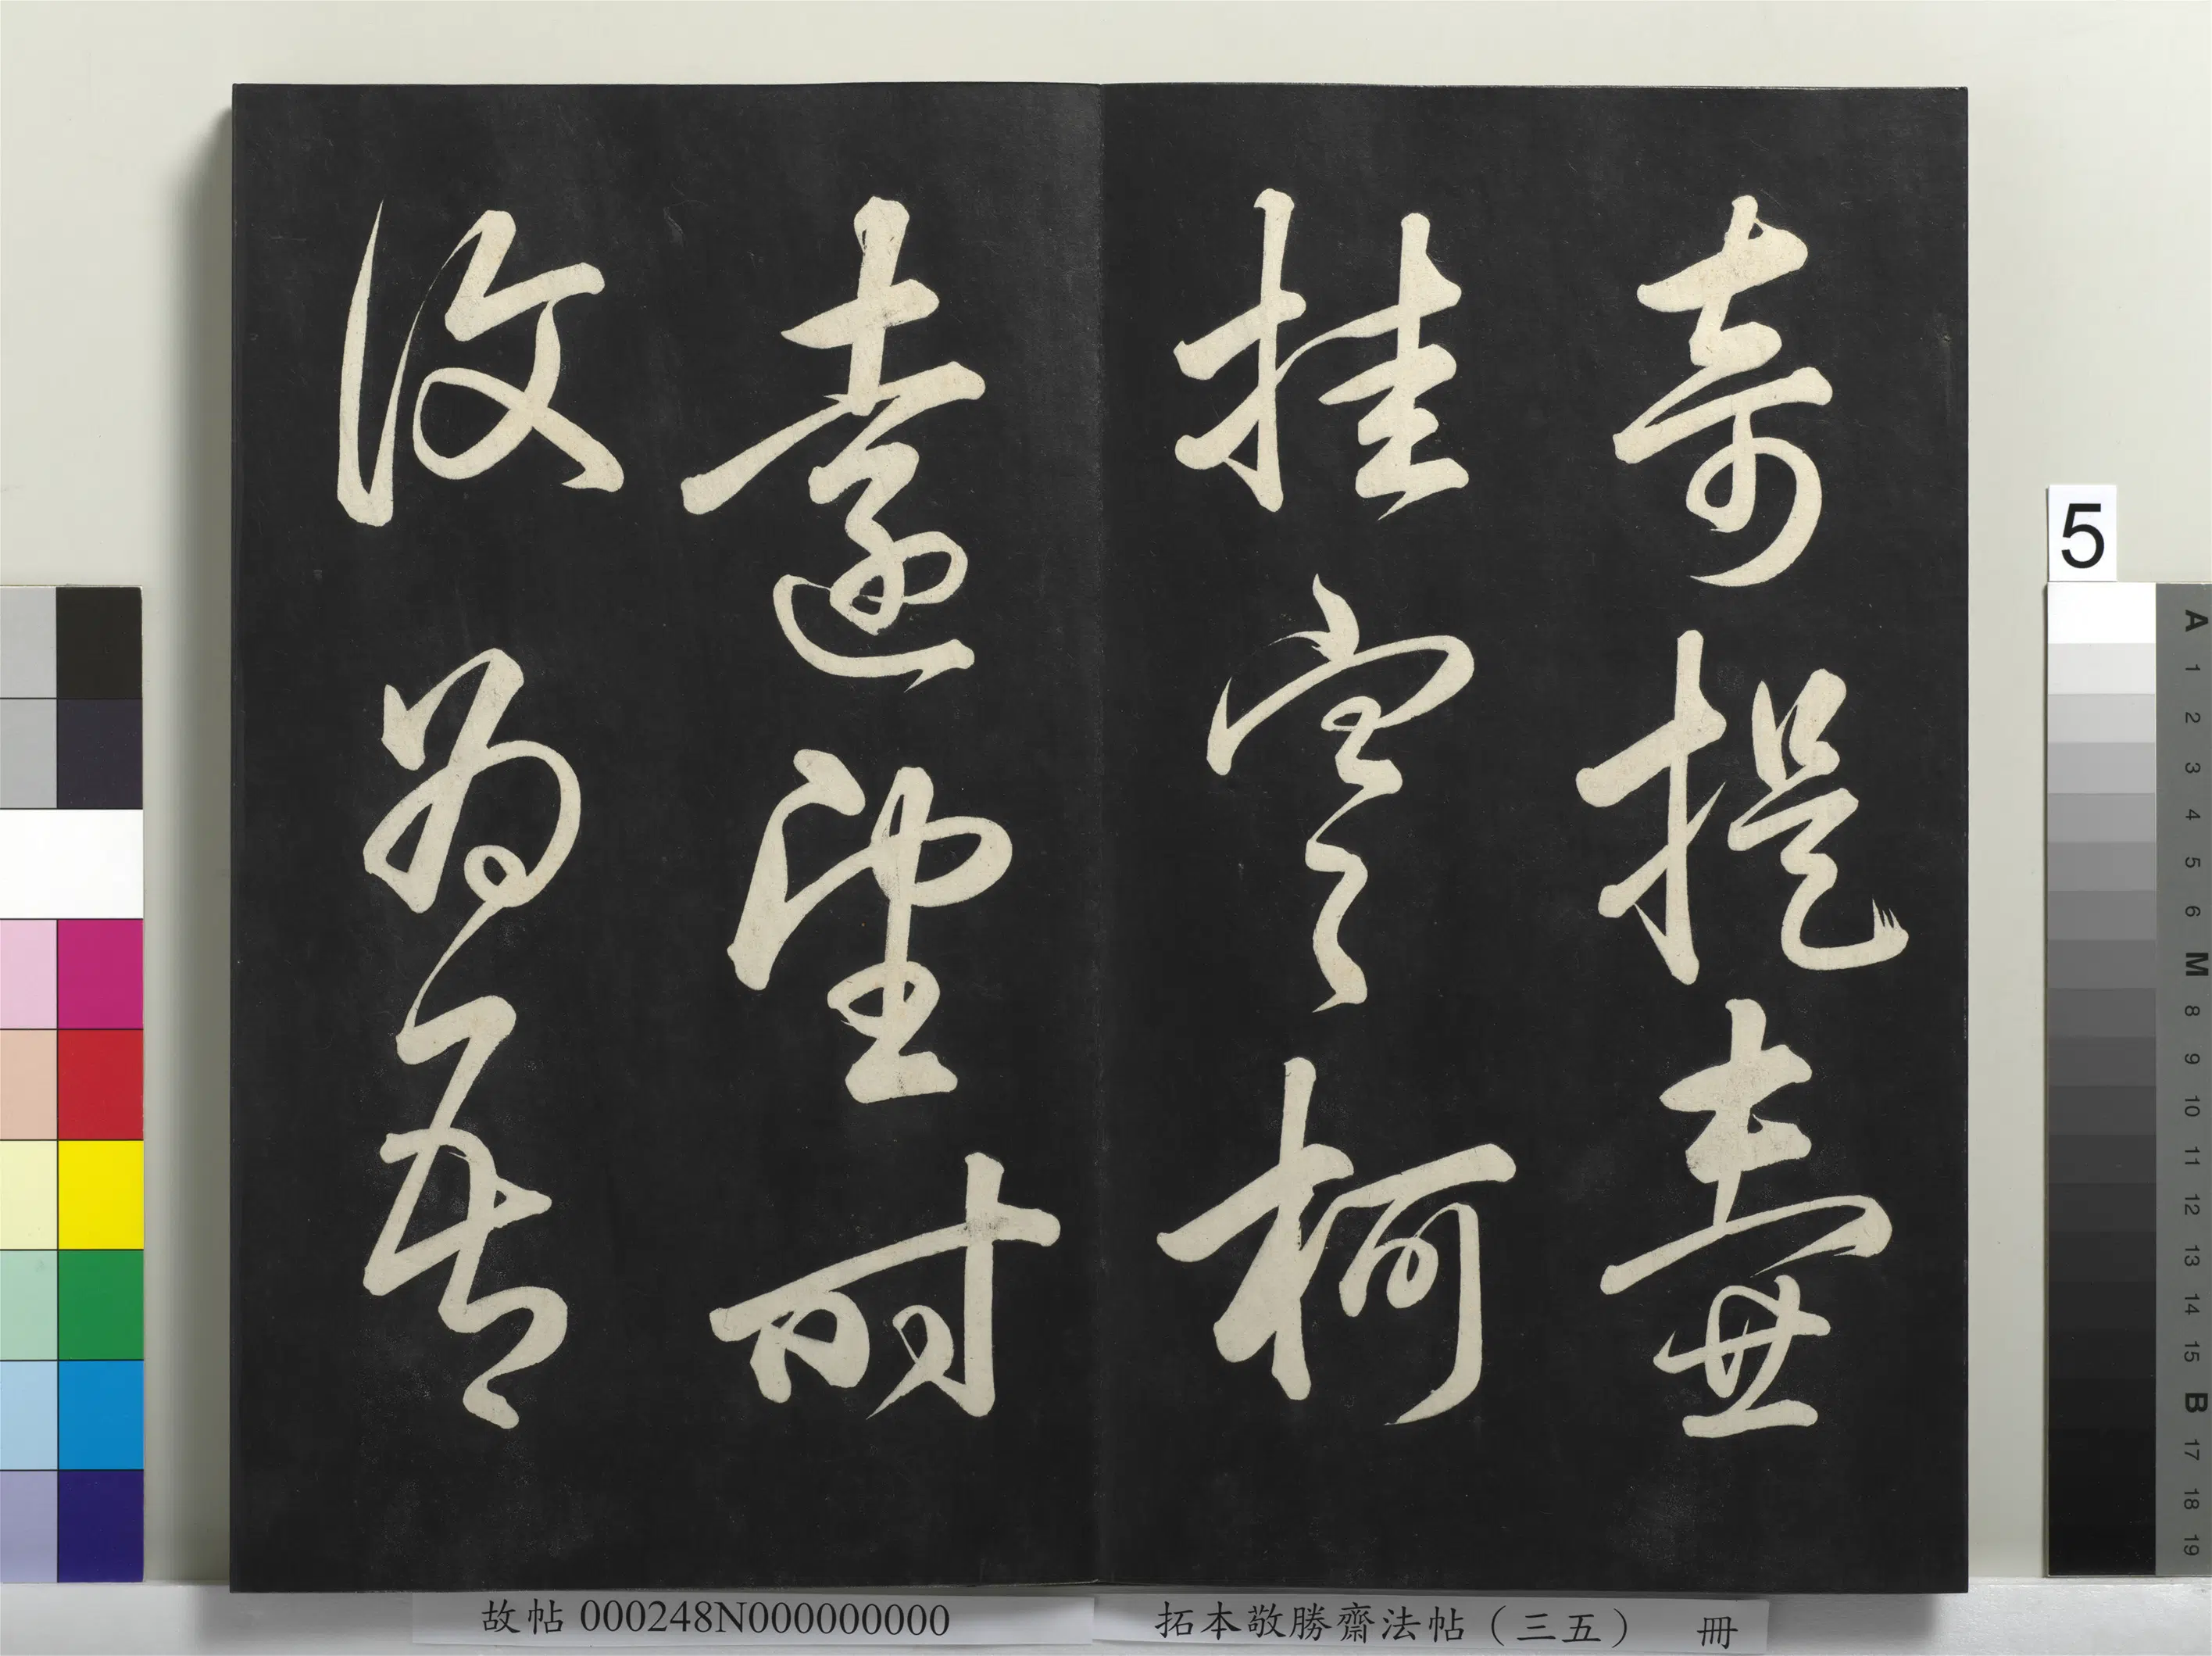 奇提壺
挂寒柯
遠望時
復為吾
5
A 1 2 3 4 5 6 M 8 9 10 11 12 13 14 15 B 17 18 19
故帖000248N000000000
拓本敬勝齋法帖（三五） 冊